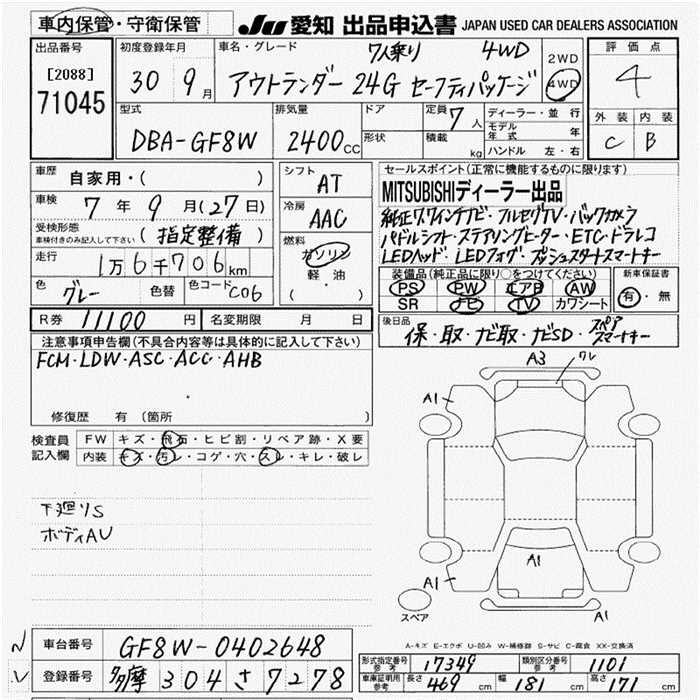 車内保管・守衛保管 JU 愛知 出品申込書 JAPAN USED CAR DEALERS ASSOCIATION
出品番号 [2088] 71045
初度登録年月 30 9月
車名・グレード 7人乗り 4WD
アウトランダー 24G セーフティパッケージ
2WD 4WD
評価点 4
外装 内装
C B
型式 DBA-GF8W
排気量 2400cc
ドア 形状
定員 7人 積載 kg
ディーラー・並行
モデル年式 年
ハンドル 左・右
車歴 自家用・( )
車検 7年 9月(27日)
受検形態 車検付きのみ記入して下さい (指定整備)
走行 1万6千706km
色 グレー 色替 色コード C06
シフト AT
冷房 AAC
燃料 ガソリン 軽油 ( )
セールスポイント(正常に機能するものに限ります)
MITSUBISHIディーラー出品
純正7.7インチナビ・フルセグTV・バックカメラ
パドルシフト・ステアリングヒーター・ETC・ドラレコ
LEDヘッド・LEDフォグ・プッシュスタートスマートキー
装備品(純正品に限り○をつけてください) 新車保証書
PS PW エアB AW 有・無
SR ナビ TV カワシート
R券 11100円 名変期限 月 日
後日品 保・取・ナビ取・ナビSD・スペアスマートキー
注意事項申告欄(不具合内容等は具体的に記入して下さい)
FCM・LDW・ASC・ACC・AHB
修復歴 有(箇所
検査員記入欄
FW キズ・飛石・ヒビ割・リペア跡・X要
内装 キズ・汚レ・コゲ・穴・スレ・キレ・破レ
下廻りS
ボディAU
A3 ワレ
A1
A1
A1
A1
A1
スペア
A-キズ E-エクボ U-凹み W-補修跡 S-サビ C-腐食 XX-交換済
車台番号 GF8W-0402648
登録番号 多摩 304 さ 7278
形式指定番号 参考 17349 類別区分番号 参考 1101
車庫証明用 参考 長さ 469cm 幅 181cm 高さ 171cm